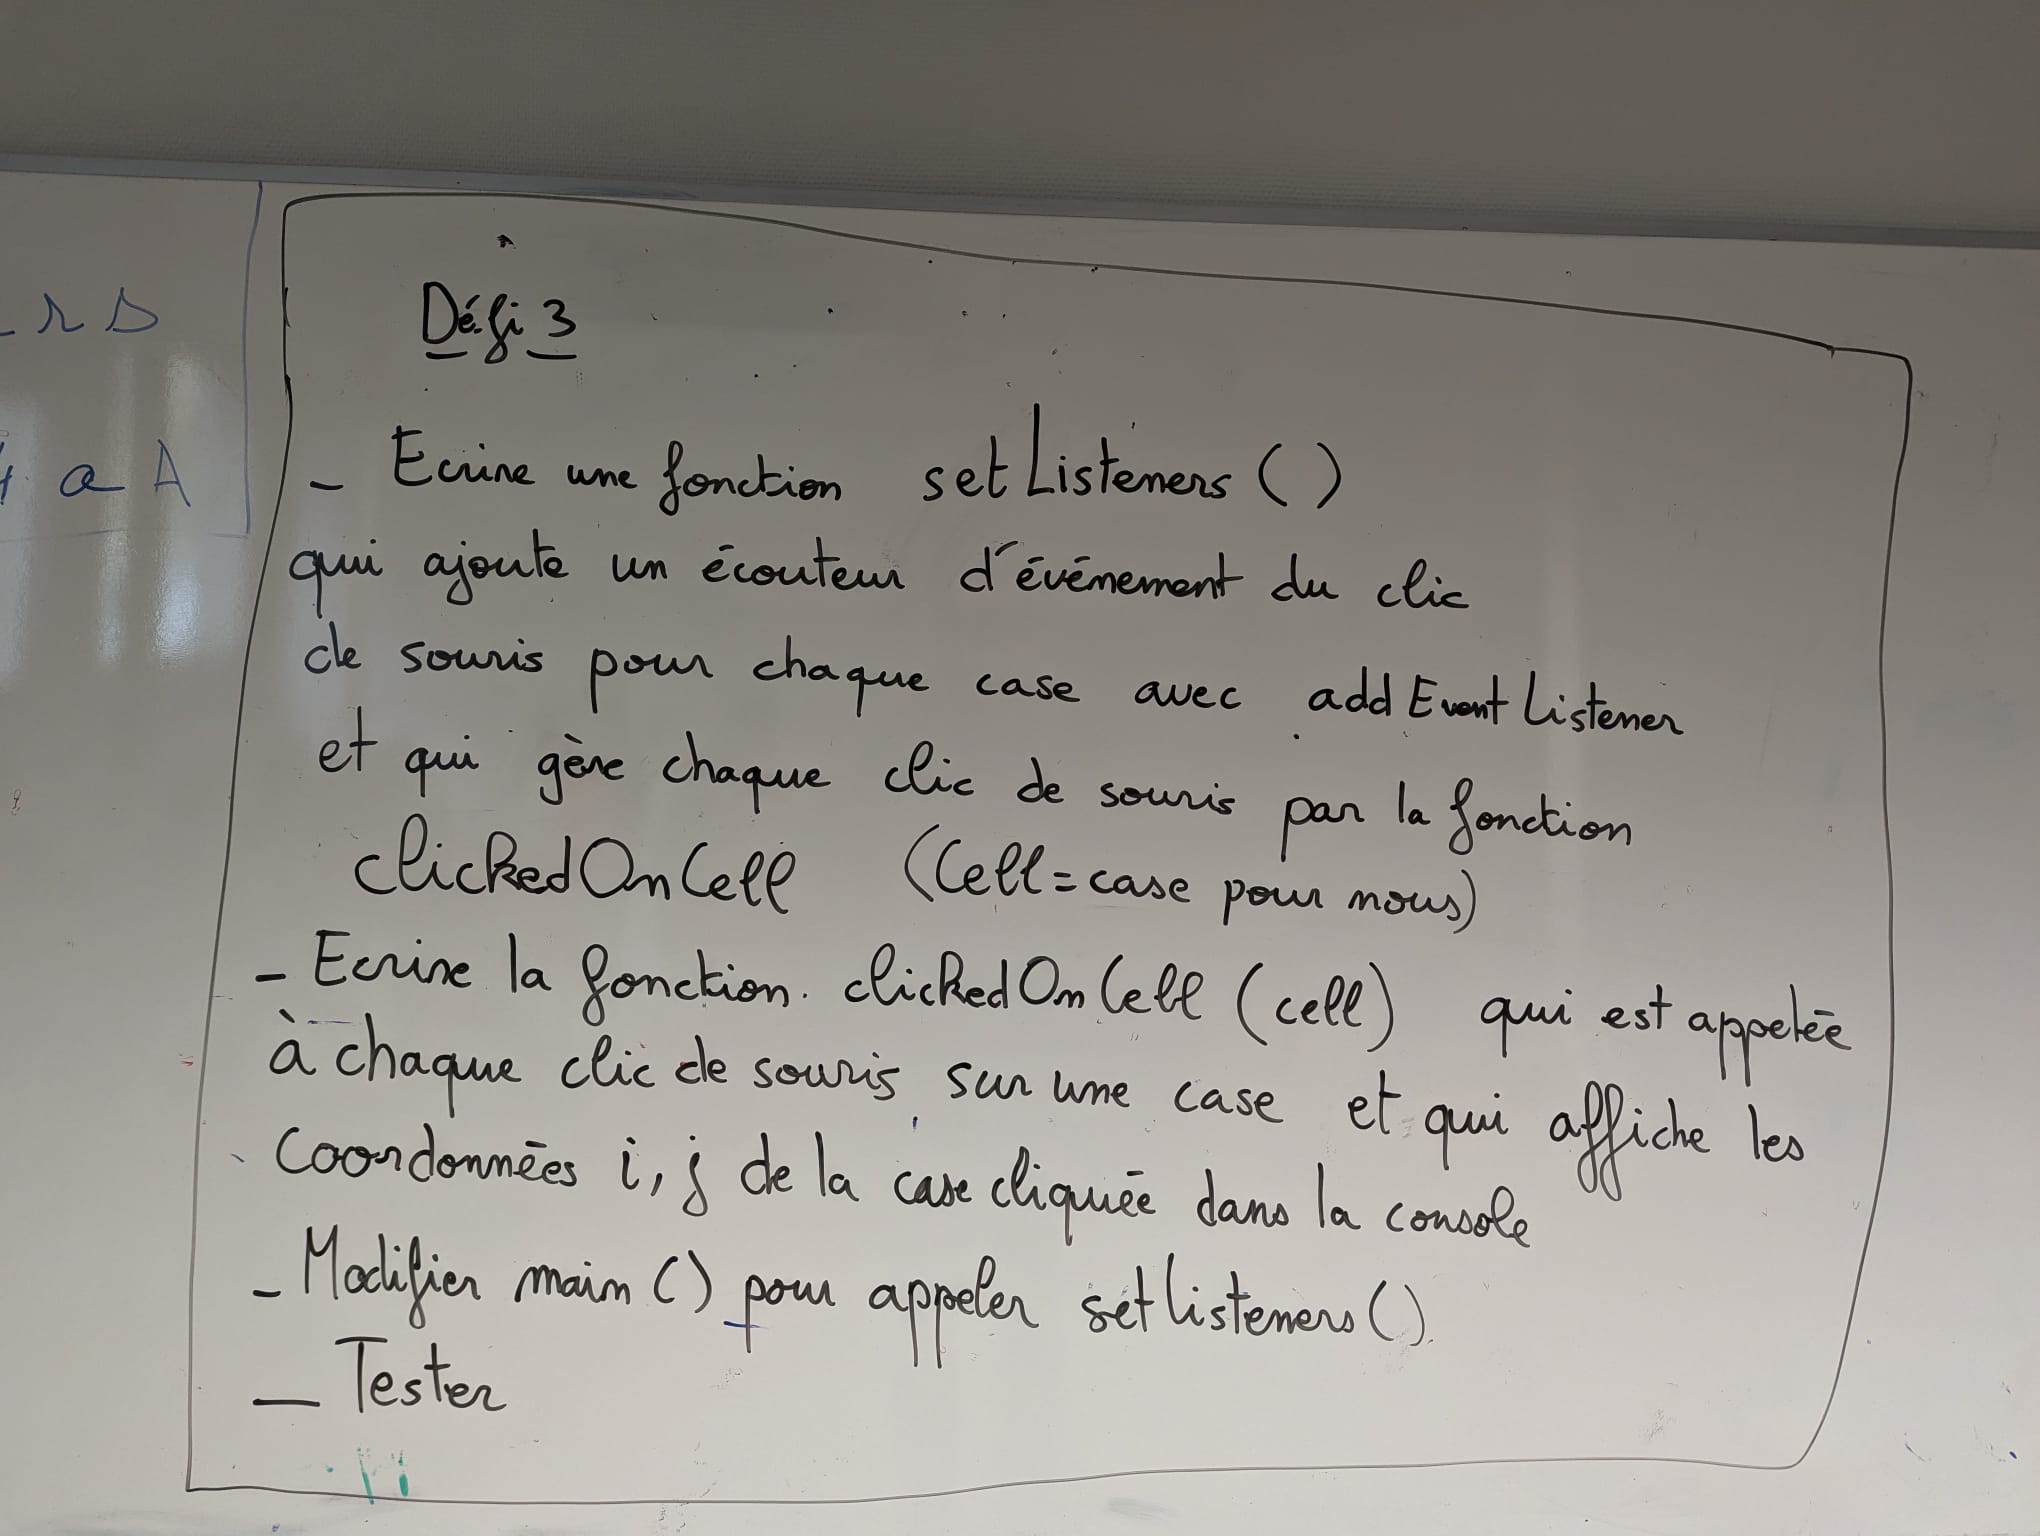 Défi 3
- Ecrire une fonction setListeners ()
qui ajoute un écouteur d'événement du clic
de souris pour chaque case avec addEventListener
et qui gère chaque clic de souris par la fonction
clickedOnCell (Cell=case pour nous)
- Ecrire la fonction clickedOnCell (cell) qui est appelée
à chaque clic de souris sur une case et qui affiche les
coordonnées i, j de la case cliquée dans la console
- Modifier main () pour appeler setlisteners ()
- Tester